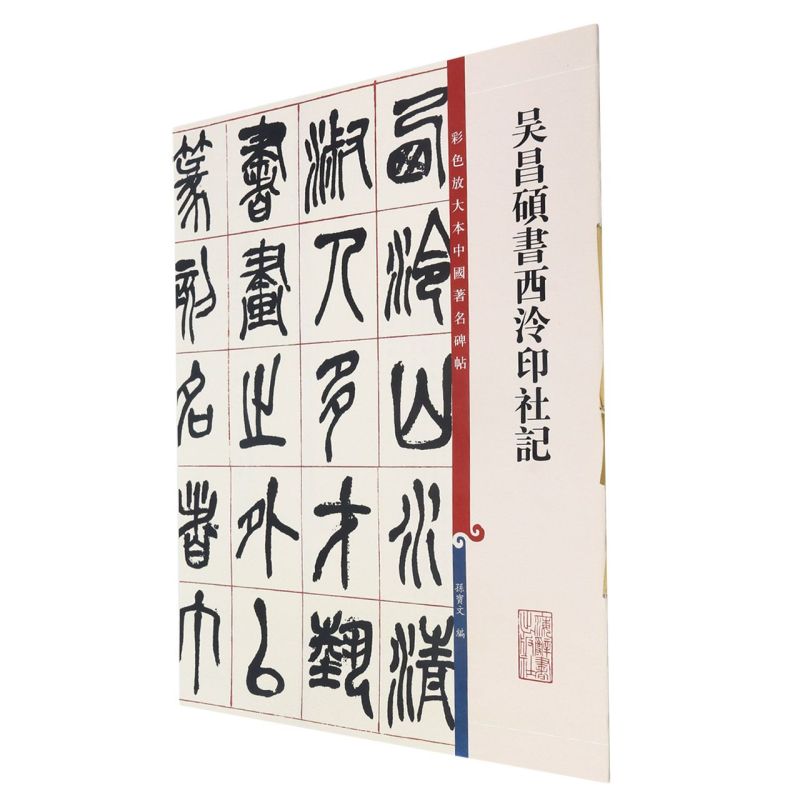 吴昌碩書西泠印社記
彩色放大本中國著名碑帖
孫寶文 編
西泠山水清
淑人多才藝
書畫之外以
篆刻名者丁